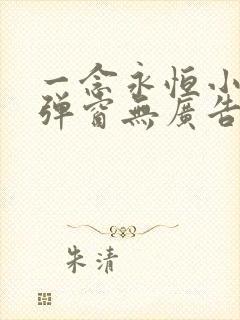 一念永恒小
弹窗無廣告
朱清